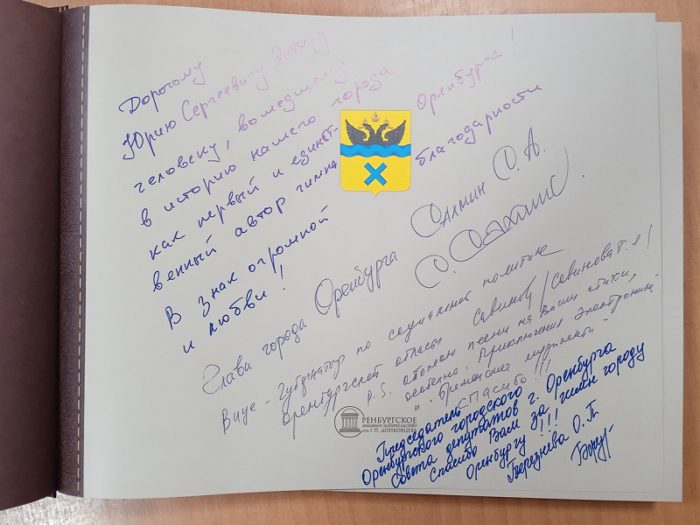 Дорогому
Юрию Сергеевичу Энтину
человеку, вошедшему
в историю нашего города
как первый и единст-
венный автор гимна Оренбурга!
В знак огромной благодарности
и любви!
Глава города Оренбурга Салмин С. А.
С. Салмин
Вице-губернатор по социальной политике
Оренбургской области Савинова /Савинова Т.Л/
P.S. обожаем песни на Ваши стихи,
особенно: "Приключения Электроника"
и "Бременские музыканты"
Спасибо!!!
Председатель
Оренбургского городского
Совета депутатов г. Оренбурга
Спасибо Вам за гимн городу
Оренбургу!!!
Березнева О.П.
ОРЕНБУРГСКОЕ
книжное издательство
им. Г.П. ДОНКОВЦЕВА